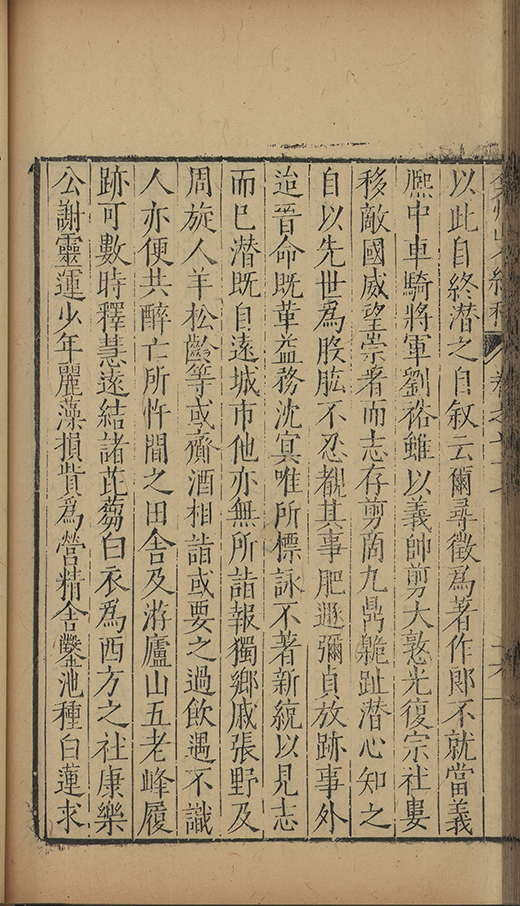 以此自終潜之自叙云爾尋徵爲著作郎不就當義
熈中車騎將軍劉裕雖以義帥剪大憝光復宗社婁
移敵國威望崇著而志存剪啇九鼎臲趾潜心知之
自以先世爲股肱不忍覩其事肥遯彌貞放跡事外
迨晉命既革益務沈㝠唯所標詠不著新統以見志
而已潜既自遠城市他亦無所詣報獨鄉戚張野及
周旋人羊松齡等或齎酒相詣或要之過飲遇不識
人亦便共醉亡所忤間之田舎及游廬山五老峰履
跡可數時釋慧遠結諸苾蒭白衣爲西方之社康樂
公謝靈運少年麗藻損貲爲營精舎鑿池種白蓮求